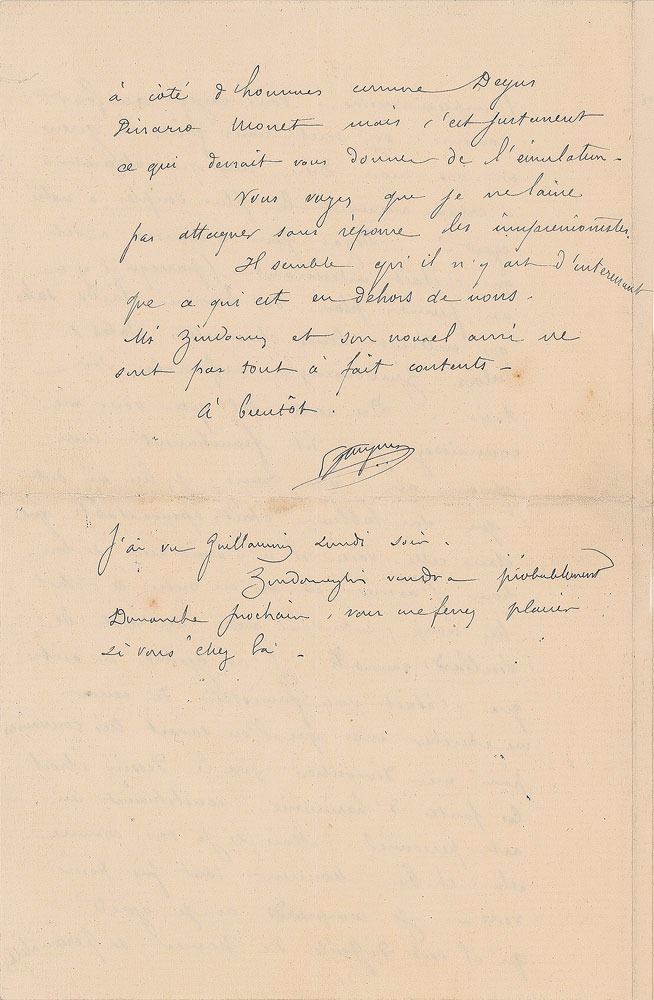 à côté d'hommes comme Degas
Pissarro Monet mais c'est justement
ce qui devrait vous donner de l'émulation -
Vous voyez que je ne laisse
pas attaquer sans réponse les impressionnistes.
Il semble qu'il n'y ait d'intéressant
que ce qui est en dehors de nous.
Mr Zandomeg et son nouvel ami ne
sont pas tout à fait contents -
à bientôt.
J'ai vu Guillaumin Lundi soir.
Zandomeghi viendra probablement
Dimanche prochain, vous me ferez plaisir
si vous chez là -